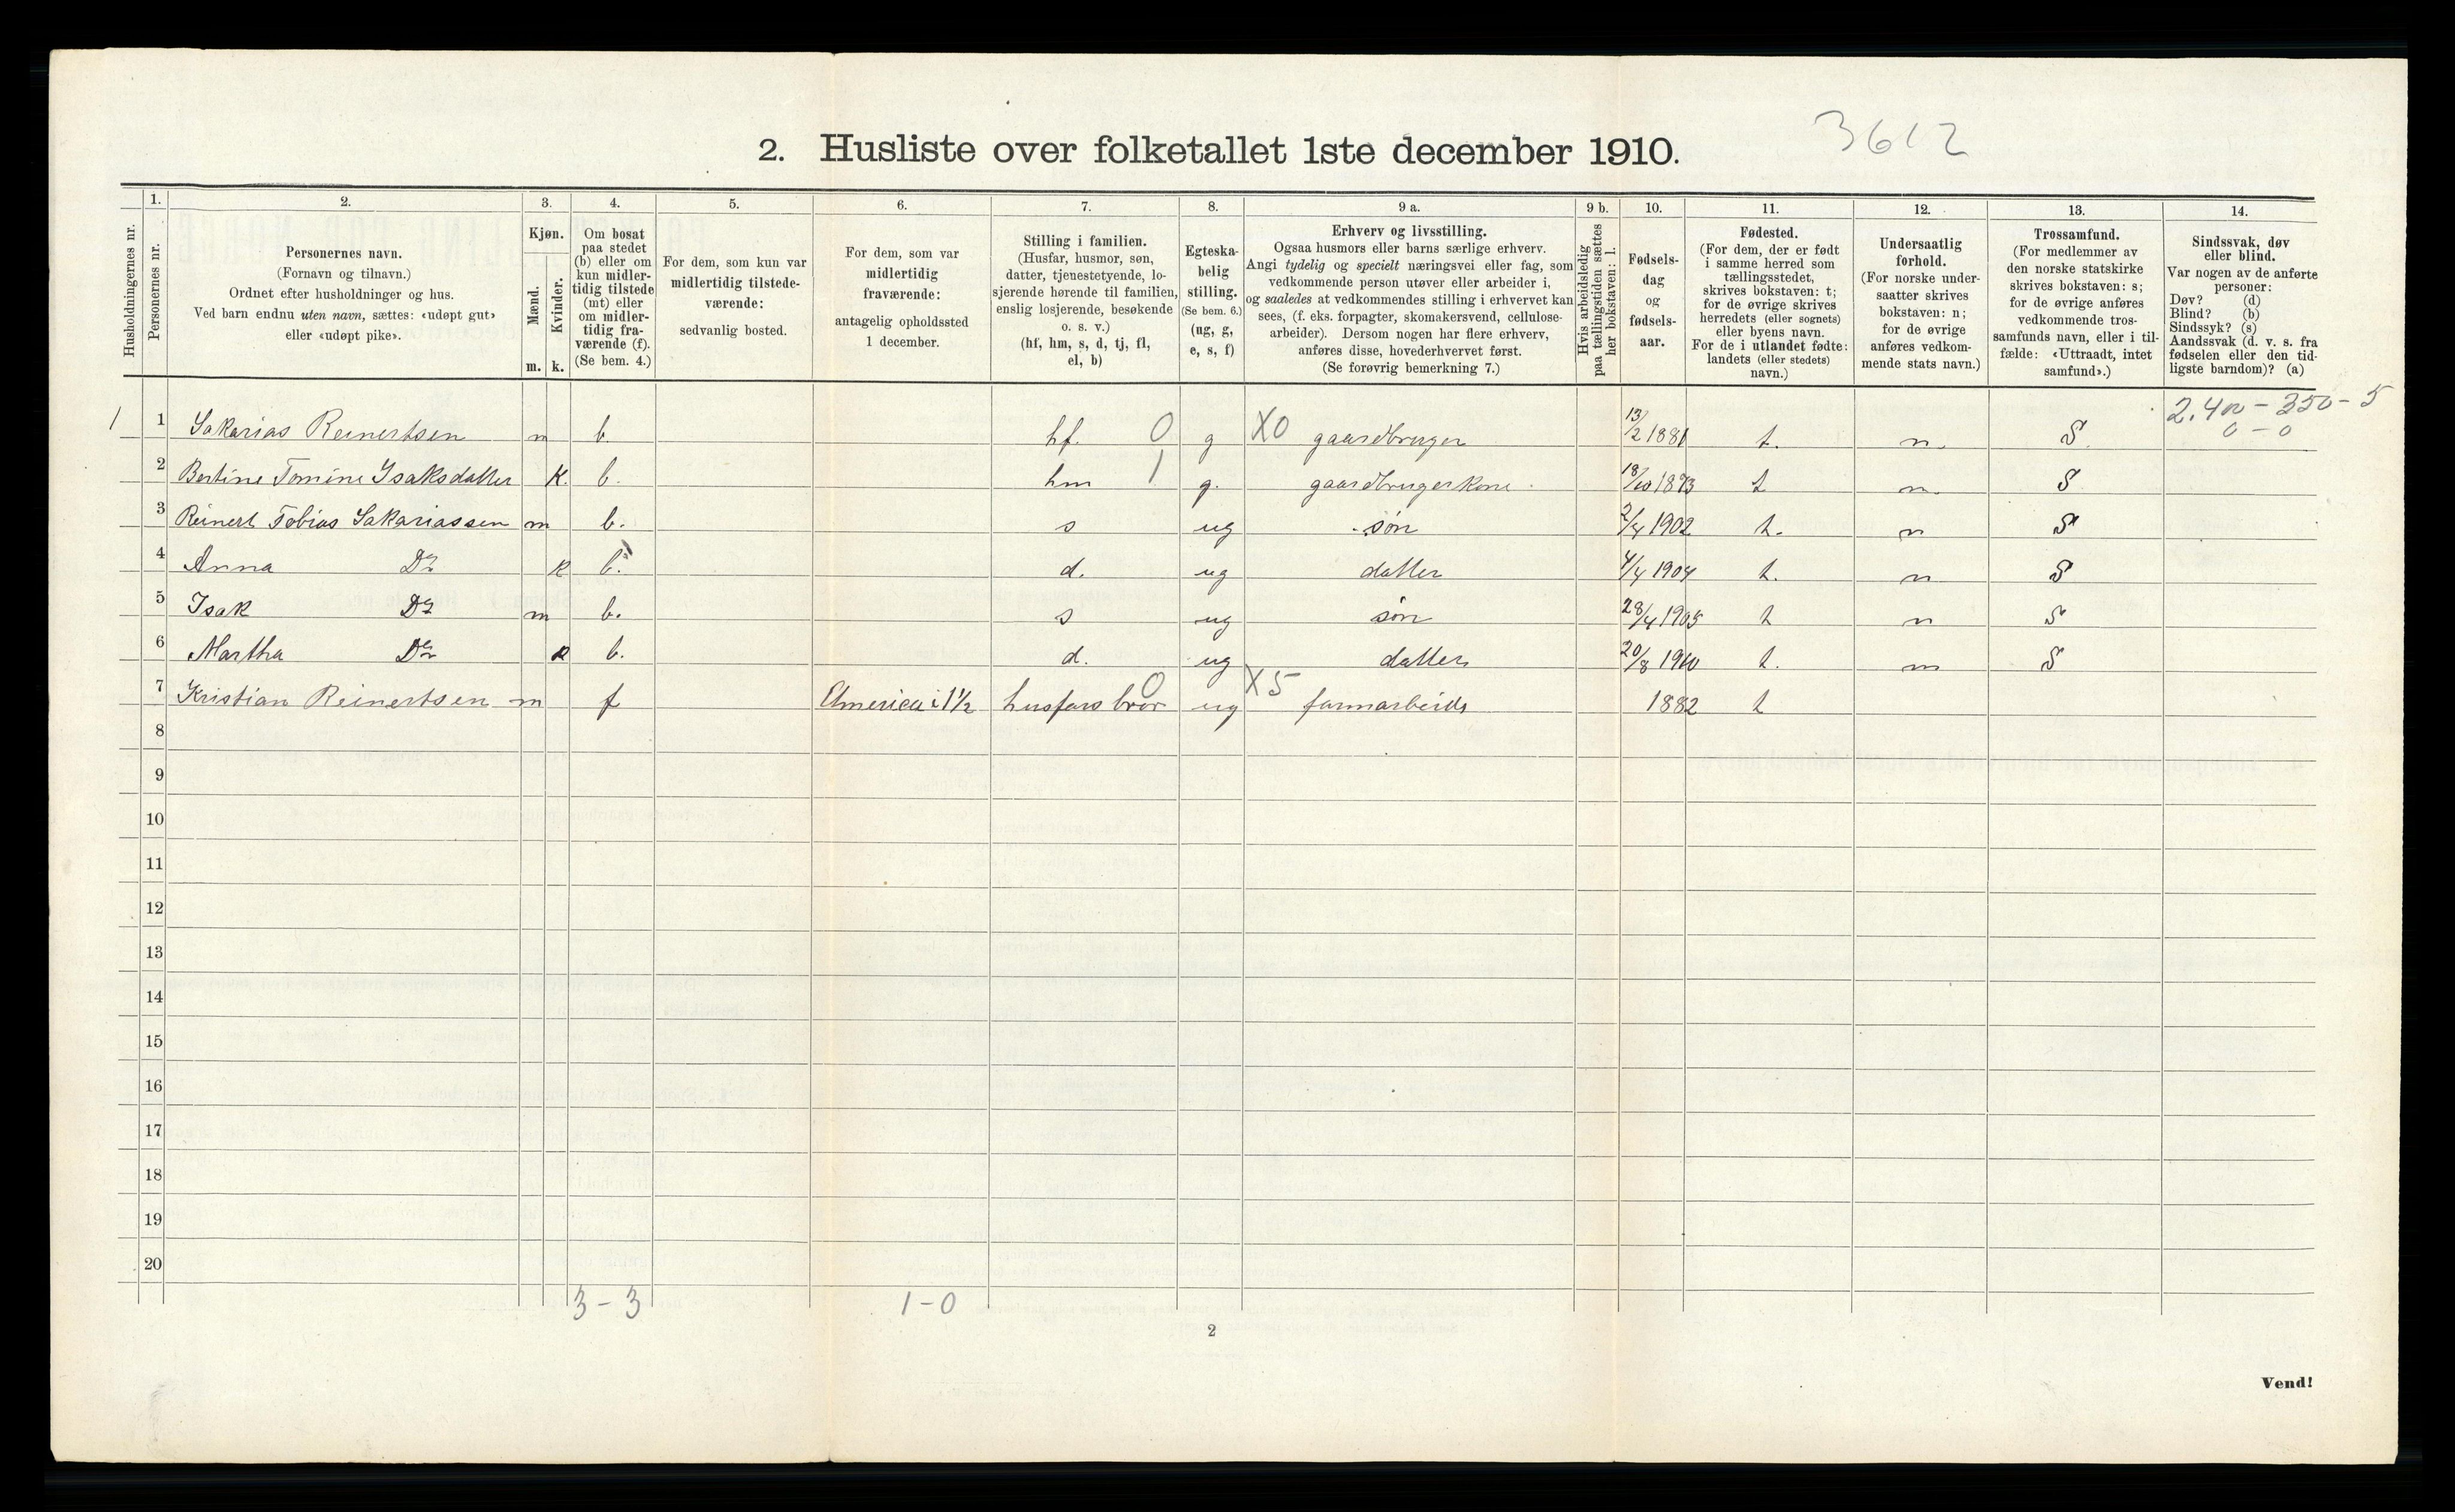 3612
2. Husliste over folketallet 1ste december 1910.
Husholdningernes nr.
1.
Personernes nr.
2.
Personernes navn.
(Fornavn og tilnavn.)
Ordnet efter husholdninger og hus.
Ved barn endnu uten navn, sættes: «udøpt gut»
eller «udøpt pike».
3.
Kjøn.
Mænd.
Kvinder.
m. k.
4.
Om bosat
paa stedet
(b) eller om
kun midler-
tidig tilstede
(mt) eller
om midler-
tidig fra-
værende (f).
(Se bem. 4.)
5.
For dem, som kun var
midlertidig tilstede-
værende:
sedvanlig bosted.
6.
For dem, som var
midlertidig
fraværende:
antagelig opholdssted
1 december.
7.
Stilling i familien.
(Husfar, husmor, søn,
datter, tjenestetyende, lo-
sjerende hørende til familien,
enslig losjerende, besøkende
o. s. v.)
(hf, hm, s, d, tj, fl,
el, b)
8.
Egteska-
belig
stilling.
(Se bem. 6.)
(ug, g,
e, s, f)
9 a.
Erhverv og livsstilling.
Ogsaa husmors eller barns særlige erhverv.
Angi tydelig og specielt næringsvei eller fag, som
vedkommende person utøver eller arbeider i,
og saaledes at vedkommendes stilling i erhvervet kan
sees, (f. eks. forpagter, skomakersvend, cellulose-
arbeider). Dersom nogen har flere erhverv,
anføres disse, hovederhvervet først.
(Se forøvrig bemerkning 7.)
9 b.
Hvis arbeidsledig
paa tællingstiden sættes
her bokstaven: l.
10.
Fødsels-
dag
og
fødsels-
aar.
11.
Fødested.
(For dem, der er født
i samme herred som
tællingsstedet,
skrives bokstaven: t;
for de øvrige skrives
herredets (eller sognets)
eller byens navn.
For de i utlandet fødte:
landets (eller stedets)
navn.)
12.
Undersaatlig
forhold.
(For norske under-
saatter skrives
bokstaven: n;
for de øvrige
anføres vedkom-
mende stats navn.)
13.
Trossamfund.
(For medlemmer av
den norske statskirke
skrives bokstaven: s;
for de øvrige anføres
vedkommende tros-
samfunds navn, eller i til-
fælde: «Uttraadt, intet
samfund».)
14.
Sindssvak, døv
eller blind.
Var nogen av de anførte
personer:
Døv? (d)
Blind? (b)
Sindssyk? (s)
Aandssvak (d. v. s. fra
fødselen eller den tid-
ligste barndom)? (a)
2.400 - 350 - 5
0 - 0
1 1 Sakarias Reinertsen m b hf. 0 g X0 gaardbruger 13/2 1881 t. n. S.
2 Bertine Tomine Isaksdatter K. b. hm 1 g. gaardbrugerkone. t n. S
3 Reinert Tobias Sakariassen m b. s ug søn 2/4 1902 t. n S
4 Anna Do k b. d. ug datter 4/4 1904 t. n S
5 Isak Do m b. s ug søn 28/4 1905 t n S
6 Martha Do k b. d. ug datter 20/8 1910 t. n S
7 Kristian Reinertsen m f America i 1½ husfars bror 0 ug X5 farmarbeide 1882 t
8
9
10
11
12
13
14
15
16
17
18
19
20
3 - 3 1 - 0
2
Vend!